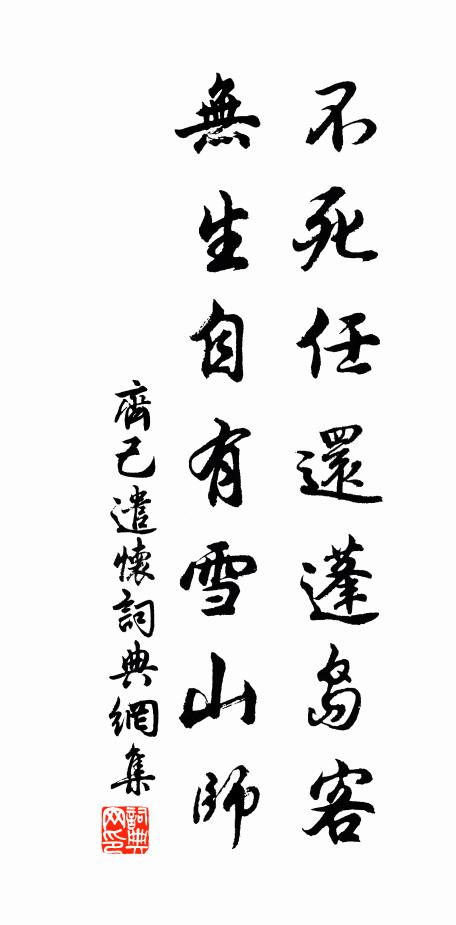 不死任還蓬島客
無生自有雪山師
齊己遣懷詞典網集
詞典網印